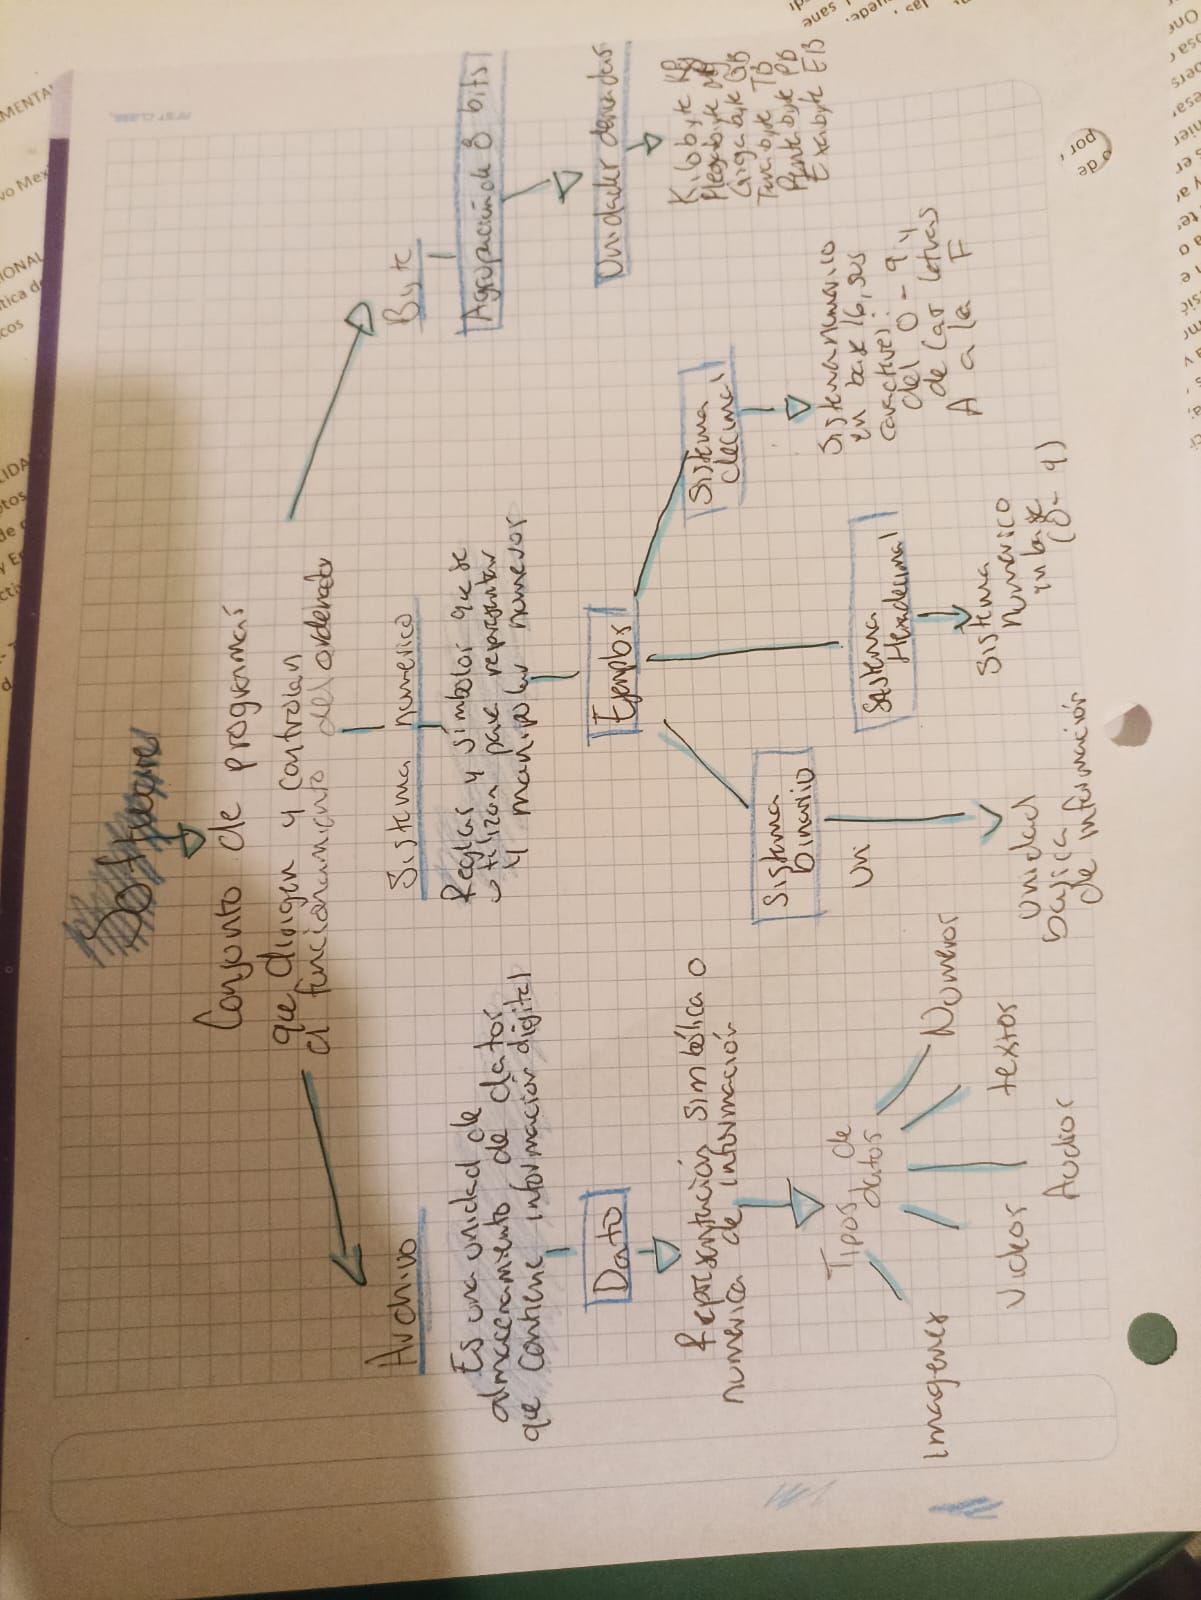 Software
Conjunto de programas
que dirigen y controlan
el funcionamiento del ordenador
Archivo
Es una unidad de
almacenamiento de datos
que contiene información digital
Dato
Representación simbólica o
numérica de información
Tipos de
datos
Imagenes
Videos
Audios
textos
Numeros
Sistema numerico
Reglas y simbolos que se
utilizan para representar
y manipular numeros
Ejemplos
Sistema
binario
Uni
Unidad
basica
de información
Sistema
Hexadecimal
Sistema
numerico
en base
(0-9)
Sistema
decimal
Sistema numerico
en base 16, sus
caracteres:
del 0-9 y
de las letras
A a la F
Byte
Agrupación de 8 bits
Unidades derivadas
Kilobyte KB
Megabyte MB
Gigabyte GB
TB
PB
Exabyte EB